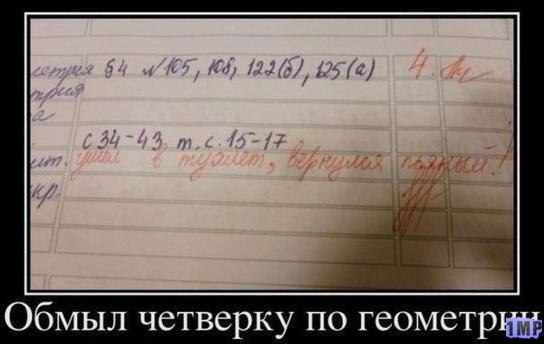 метрия §4 №105, 108, 122(б), 125(а) 4.
с 34-43 т. с. 15-17
ушел в туалет, вернулся пьяный!
Обмыл четверку по геометрии
1MP